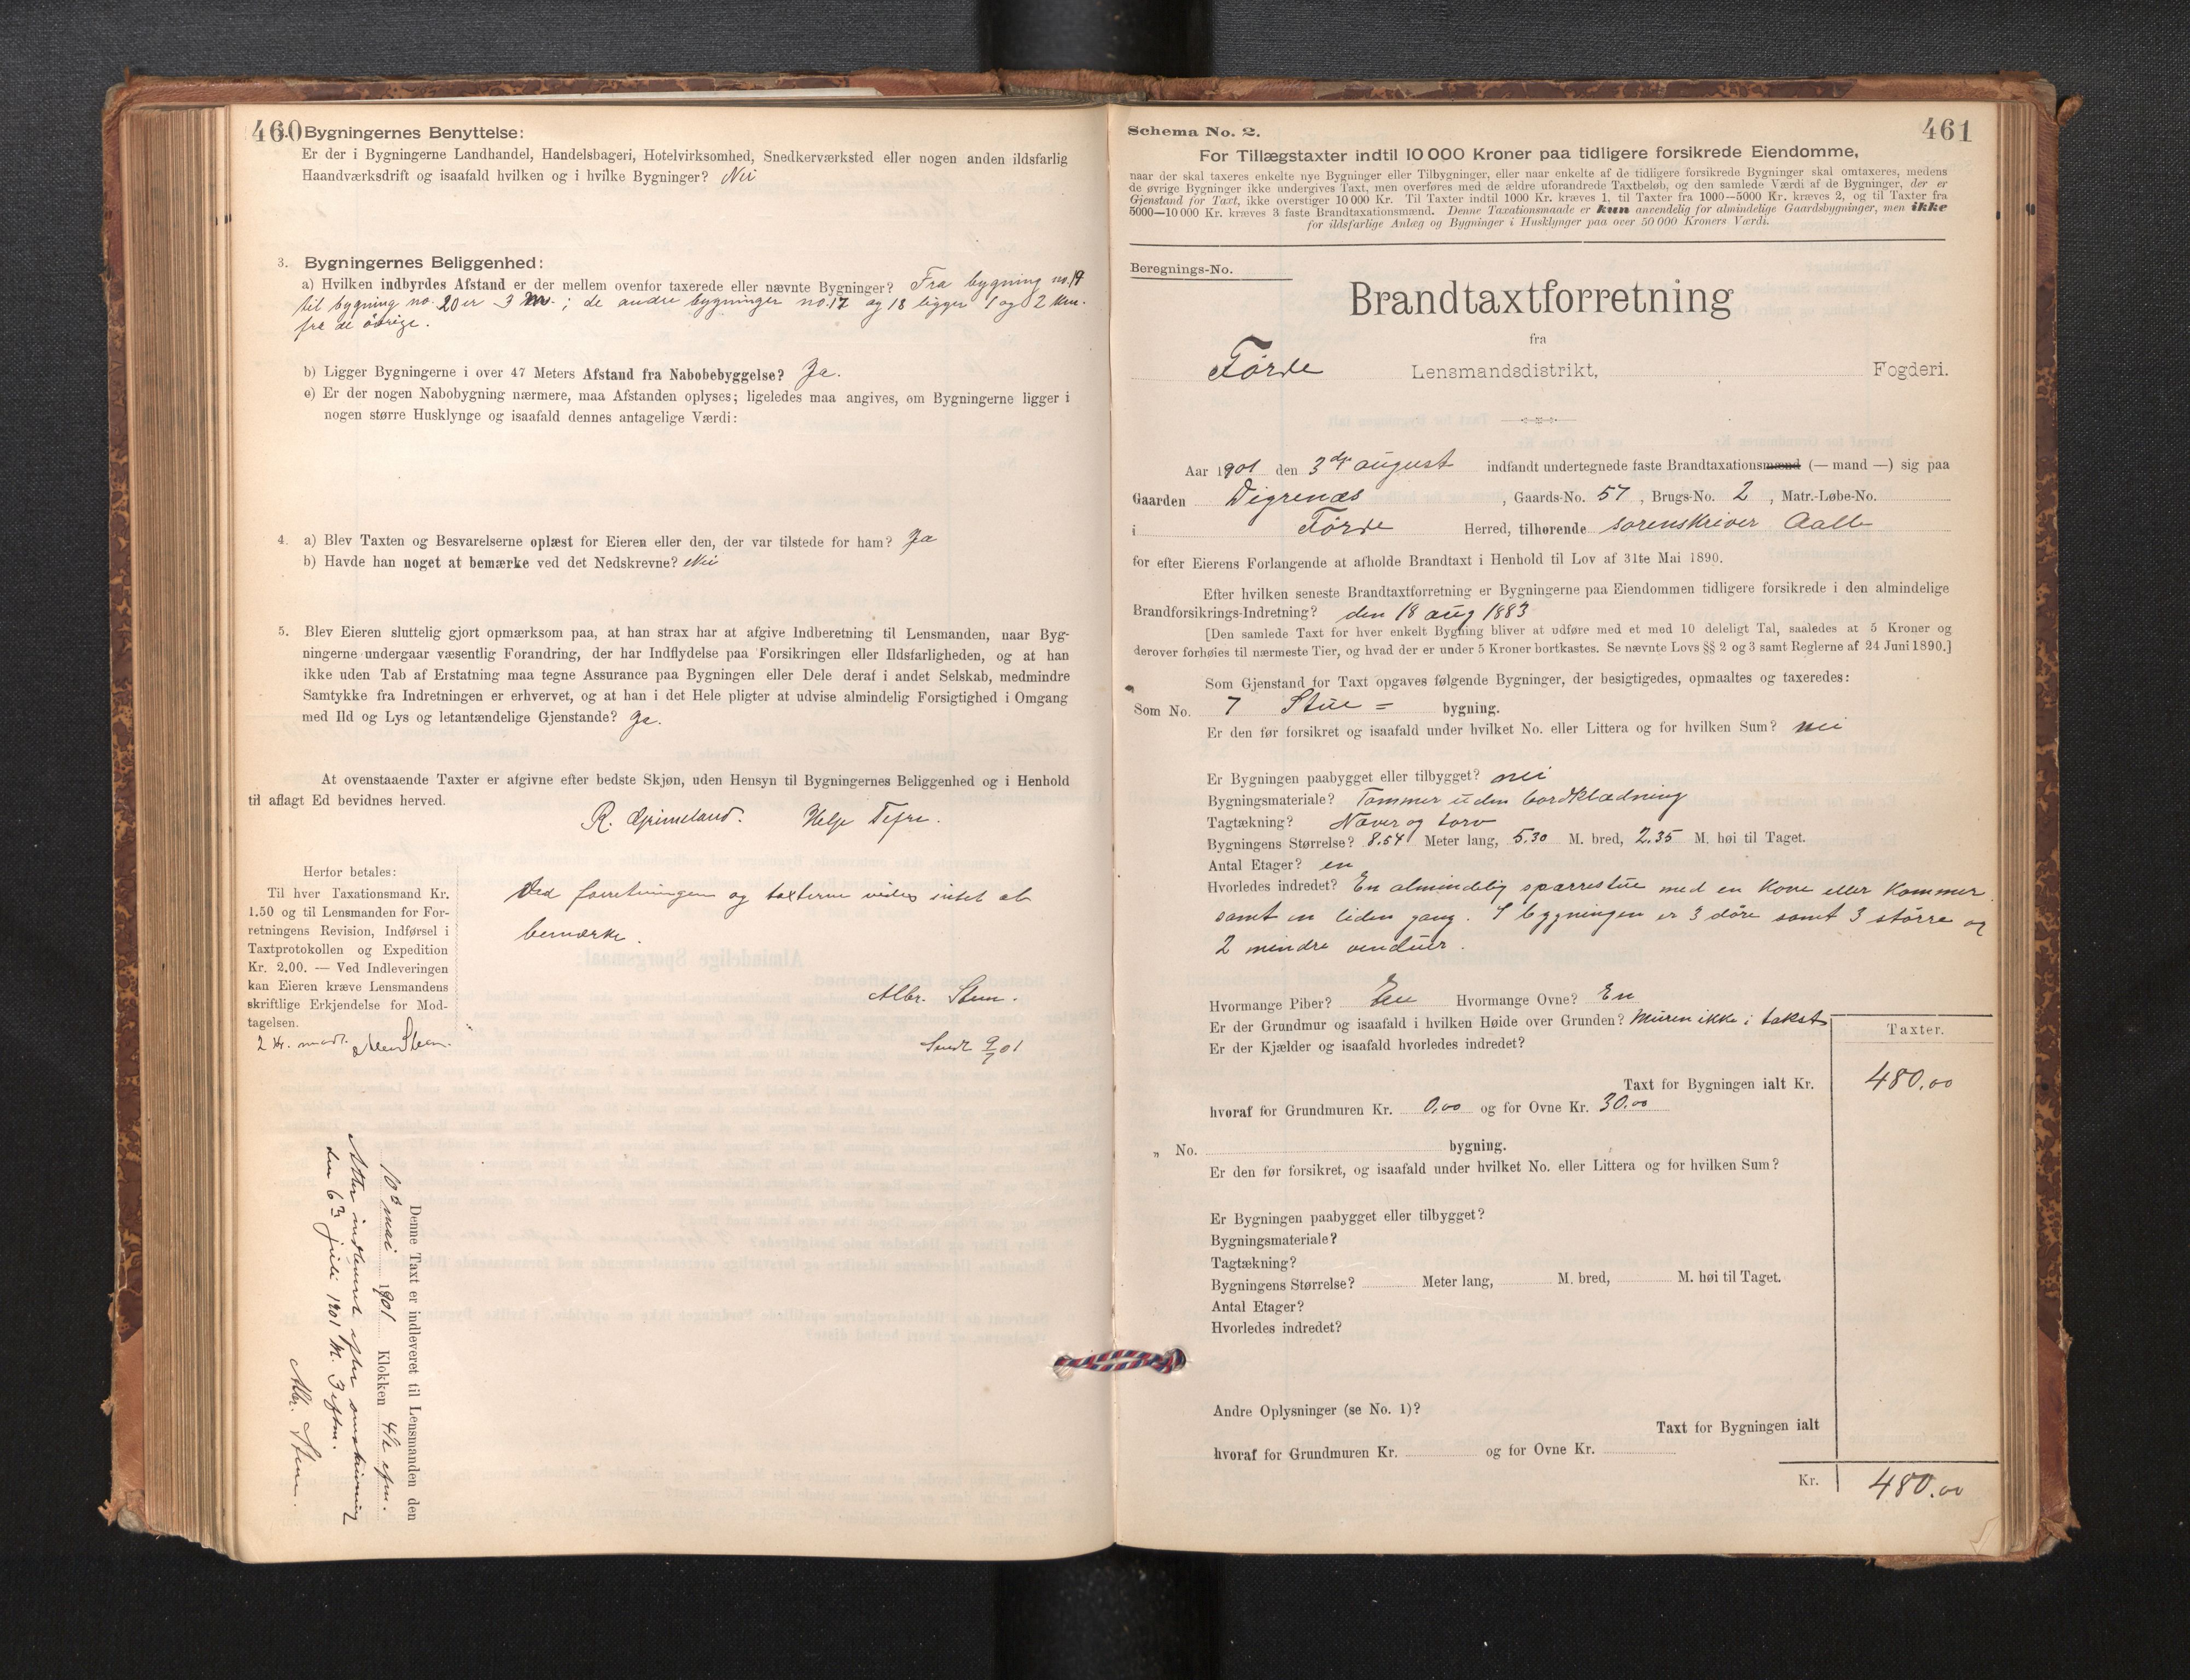 460
Bygningernes Benyttelse:
Er der i Bygningerne Landhandel, Handelsbageri, Hotelvirksomhed, Snedkerværksted eller nogen anden ildsfarlig
Haandværksdrift og isaafald hvilken og i hvilke Bygninger? Nei
3. Bygningernes Beliggenhed:
a) Hvilken indbyrdes Afstand er der mellem ovenfor taxerede eller nævnte Bygninger? Fra bygning no. 19
til bygning no. 20 er 3 m.; de andre bygninger no. 17 og 18 ligger 1 og 2 km.
fra de övrige.
b) Ligger Bygningerne i over 47 Meters Afstand fra Nabobebyggelse? Ja.
c) Er der nogen Nabobygning nærmere, maa Afstanden oplyses; ligeledes maa angives, om Bygningerne ligger i
nogen større Husklynge og isaafald dennes antagelige Værdi:
4. a) Blev Taxten og Besvarelserne oplæst for Eieren eller den, der var tilstede for ham? Ja
b) Havde han noget at bemærke ved det Nedskrevne? Nei
5. Blev Eieren sluttelig gjort opmærksom paa, at han strax har at afgive Indberetning til Lensmanden, naar Byg-
ningerne undergaar væsentlig Forandring, der har Indflydelse paa Forsikringen eller Ildsfarligheden, og at han
ikke uden Tab af Erstatning maa tegne Assurance paa Bygningen eller Dele deraf i andet Selskab, medmindre
Samtykke fra Indretningen er erhvervet, og at han i det Hele pligter at udvise almindelig Forsigtighed i Omgang
med Ild og Lys og letantændelige Gjenstande? Ja.
At ovenstaaende Taxter er afgivne efter bedste Skjøn, uden Hensyn til Bygningernes Beliggenhed og i Henhold
til aflagt Ed bevidnes herved.
R. Grimeland. Helje Tefre.
Herfor betales:
Til hver Taxationsmand Kr.
1.50 og til Lensmanden for For-
retningens Revision, Indførsel i
Taxtprotokollen og Expedition
Kr. 2.00. — Ved Indleveringen
kan Eieren kræve Lensmandens
skriftlige Erkjendelse for Mod-
tagelsen.
2 Kr. modt. Albr Steen.
Ved forretningen og taxterne vides intet at
bemærke.
Albr. Steen.
Sendt 9/7 01
Denne Taxt er indleveret til Lensmanden den
10de mai 1901 Klokken 4½ efm.
Atter indleveret efter omskrivning
den 6te juli 1901 kl. 3 eftm.
Albr. Steen.
Schema No. 2.
461
For Tillægstaxter indtil 10 000 Kroner paa tidligere forsikrede Eiendomme,
naar der skal taxeres enkelte nye Bygninger eller Tilbygninger, eller naar enkelte af de tidligere forsikrede Bygninger skal omtaxeres, medens
de øvrige Bygninger ikke undergives Taxt, men overføres med de ældre uforandrede Taxtbeløb, og den samlede Værdi af de Bygninger, der er
Gjenstand for Taxt, ikke overstiger 10 000 Kr. Til Taxter indtil 1000 Kr. kræves 1, til Taxter fra 1000—5000 Kr. kræves 2, og til Taxter fra
5000—10 000 Kr. kræves 3 faste Brandtaxationsmænd. Denne Taxationsmaade er kun anvendelig for almindelige Gaardsbygninger, men ikke
for ildsfarlige Anlæg og Bygninger i Husklynger paa over 50 000 Kroners Værdi.
Beregnings-No.
Brandtaxtforretning
fra
Förde Lensmandsdistrikt, Fogderi.
Aar 1901 den 3de august indfandt undertegnede faste Brandtaxationsmænd (— mand —) sig paa
Gaarden Digrenæs, Gaards-No. 57, Brugs-No. 2, Matr.-Løbe-No.
i Förde Herred, tilhørende sorenskriver Aall
for efter Eierens Forlangende at afholde Brandtaxt i Henhold til Lov af 31te Mai 1890.
Efter hvilken seneste Brandtaxtforretning er Bygningerne paa Eiendommen tidligere forsikrede i den almindelige
Brandforsikrings-Indretning? den 18 aug 1883
[Den samlede Taxt for hver enkelt Bygning bliver at udføre med et med 10 deleligt Tal, saaledes at 5 Kroner og
derover forhøies til nærmeste Tier, og hvad der er under 5 Kroner bortkastes. Se nævnte Lovs §§ 2 og 3 samt Reglerne af 24 Juni 1890.]
Som Gjenstand for Taxt opgaves følgende Bygninger, der besigtigedes, opmaaltes og taxeredes:
Som No. 7 Stue = bygning.
Er den før forsikret og isaafald under hvilket No. eller Littera og for hvilken Sum? nei
Er Bygningen paabygget eller tilbygget? nei
Bygningsmateriale? Tømmer uden bordklædning
Tagtækning? Næver og torv
Bygningens Størrelse? 8.54 Meter lang, 5.30 M. bred, 2.35 M. høi til Taget.
Antal Etager? en
Hvorledes indredet? En almindelig sparrestue med en kove eller kammer
samt en liden gang. I bygningen er 3 döre samt 3 större og
2 mindre vinduer.
Hvormange Piber? Een Hvormange Ovne? En
Er der Grundmur og isaafald i hvilken Høide over Grunden? Muren ikke i takst
Er der Kjælder og isaafald hvorledes indredet?
Taxter.
Taxt for Bygningen ialt Kr. 480.00
hvoraf for Grundmuren Kr. 0,00 og for Ovne Kr. 30.00
„ No. bygning.
Er den før forsikret, og isaafald under hvilket No. eller Littera og for hvilken Sum?
Er Bygningen paabygget eller tilbygget?
Bygningsmateriale?
Tagtækning?
Bygningens Størrelse? Meter lang, M. bred, M. høi til Taget.
Antal Etager?
Hvorledes indredet?
Andre Oplysninger (se No. 1)?
Taxt for Bygningen ialt
hvoraf for Grundmuren Kr. og for Ovne Kr.
Kr. 480.00